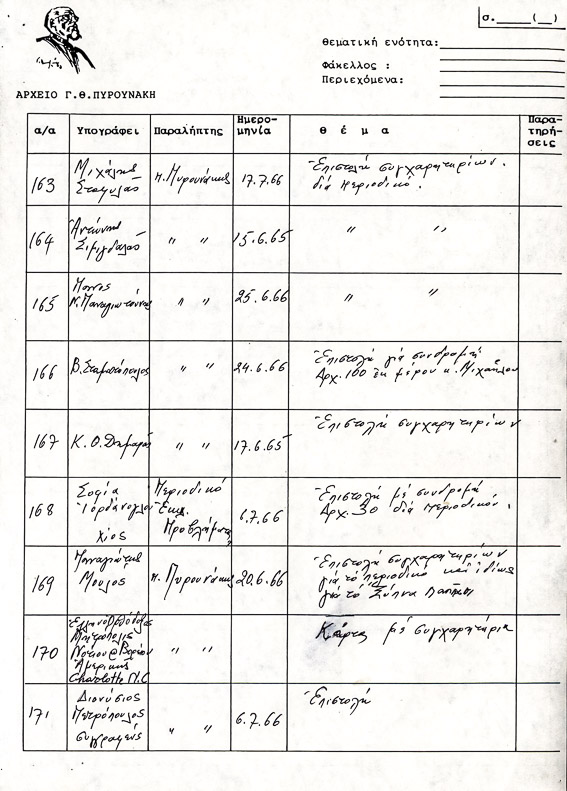 σ.____(__)
θεματική ενότητα:
Φάκελλος :
Περιεχόμενα:
ΑΡΧΕΙΟ Γ.Θ.ΠΥΡΟΥΝΑΚΗ
α/α Υπογράφει Παραλήπτης Ημερο-μηνία θ έ μ α Παρα-τηρή-σεις
163 Μιχάλης
π. Πυρουνάκης 17.7.66 Ἐπιστολή συγχαρητηρίων
διά περιοδικό.
164 Ἀντώνης
" " 15.6.65 " "
165
" " 25.6.66 " "
166 Β. Σταματόπουλος " " 24.6.66 Ἐπιστολή γιά συνδρομή
Δρχ. 100 ἐκ μέρου κ. Μιχαήλου
167 Κ. Θ. Δημαράς " " 17.6.65 Ἐπιστολή συγχαρητηρίων
168 Σοφία
Ἰορδάνογλου
Χίος
Περιοδικό
Προβλήματα
6.7.66 Ἐπιστολή μέ συνδρομή
Δρχ. 30 διά περιοδικόν.
169 Παναγιώτης
Μουλος
π. Πυρουνάκης 20.6.66 Ἐπιστολή συγχαρητηρίων
γιά τό περιοδικό καί ἰδίως
γιά τό Ξύπνα
170 Ἑλληνορθόδοξος
Μητρόπολις
Νοτίου & Βορείου
Ἀμερικῆς
Charlotte N.C
" " Κάρτα μέ συγχαρητήρια
171 Διονύσιος
Μητρόπουλος
συγγραφεύς
" " 6.7.66 Ἐπιστολή